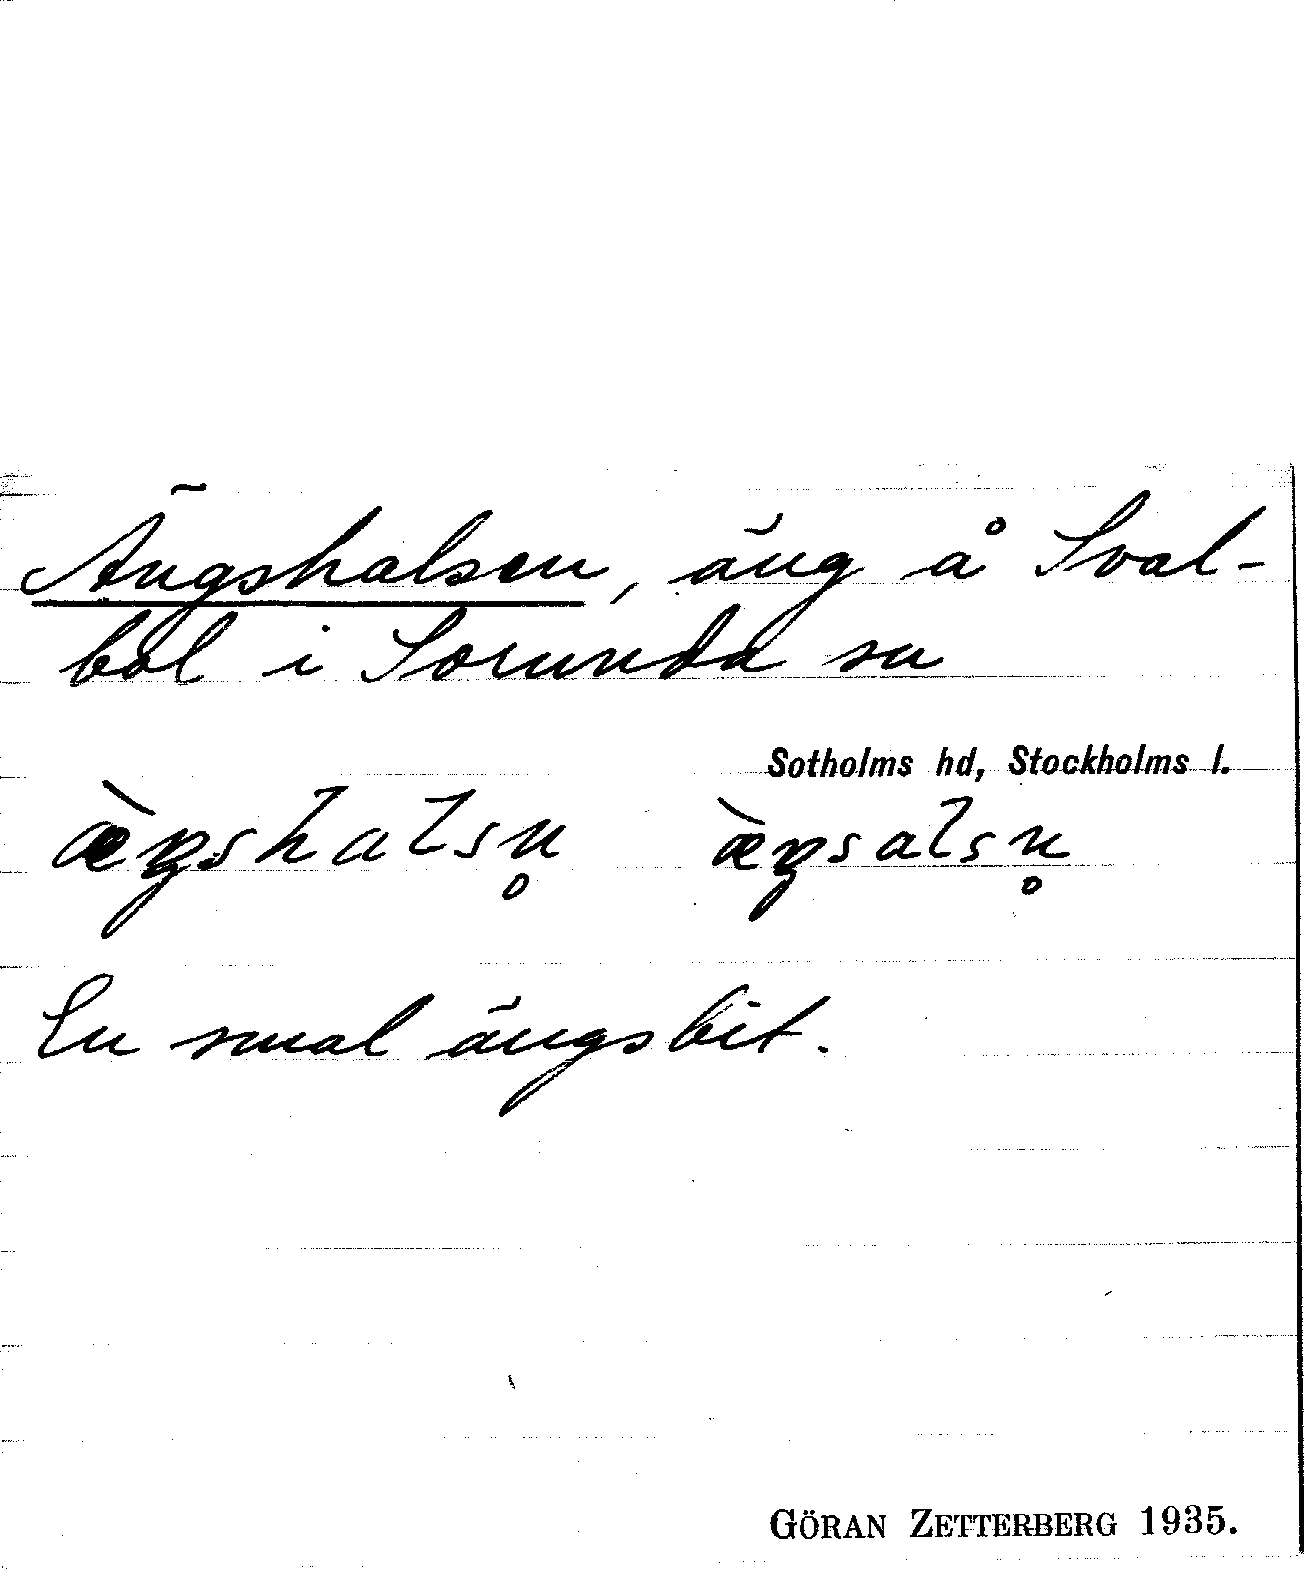 Ängshalsen, äng å Sval-
bol i Sorunda sn
Sotholms hd, Stockholms l.
æ̀ŋshalsn̥ æ̀ŋsalsn̥
En smal ängsbit.
GÖRAN ZETTERBERG 1935.